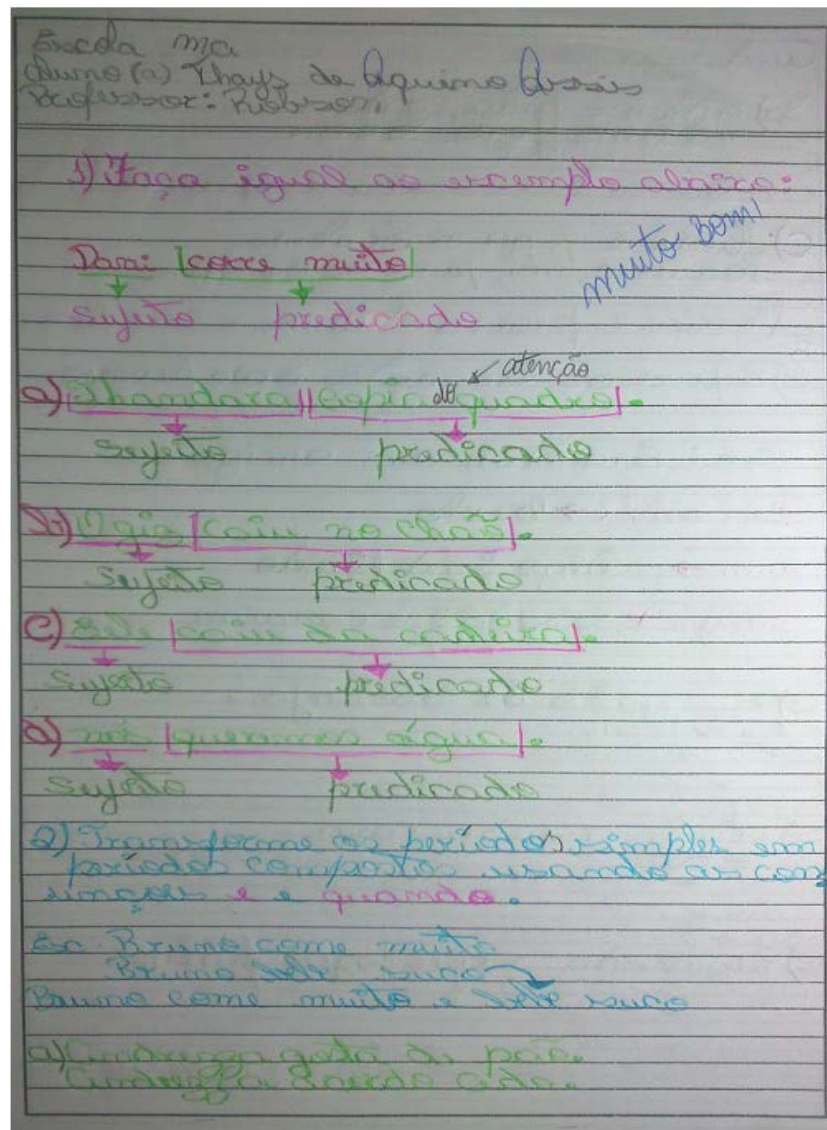 Escola ma
Aluno(a) Thays de Aquino Assis
Professor: Robson
1) Faça igual ao exemplo abaixo:
muito bom!
Dani corre muito
sujeito predicado
atenção
a) Thandara copia do quadro.
Sujeito predicado
b) O giz caiu no chão.
Sujeito predicado
c) Ele caiu da cadeira.
Sujeito predicado
d) nós queremos água.
Sujeito predicado
2) Transforme os períodos simples em
períodos compostos usando as con
junções e e quando.
Ex. Bruno come muito
Bruno bebe suco
Bruno come muito e bebe suco
a) gosta de pão.
acorda cedo.